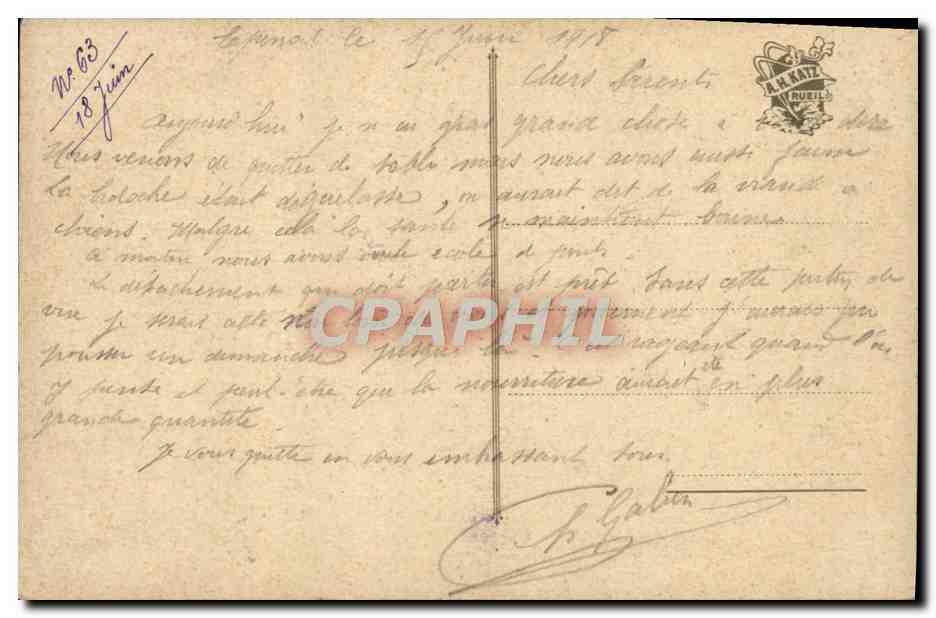 N° 63
18 Juin
Epinal le 15 Juin 1918
Chers Parents
Aujourd'hui je n'ai pas grand chose à dire
Nous venons de quitter de table mais nous avons aussi faim
la boloche était déguelasse, on aurait dit de la viande a
chiens. Malgre cela la santé se maintient bonne.
Ce matin nous avons école de ponts.
Le détachement qui doit partir est prêt. Sans cette
vue je serais j'aurais pu
pousser un dimanche jusque la rageant quand l'on
y pense et peut-être que la nourriture aurait été en plus
grande quantité.
Je vous quitte en vous embrassant tous.
Gaben
A.H. KATZ
RUEIL
CPAPHIL